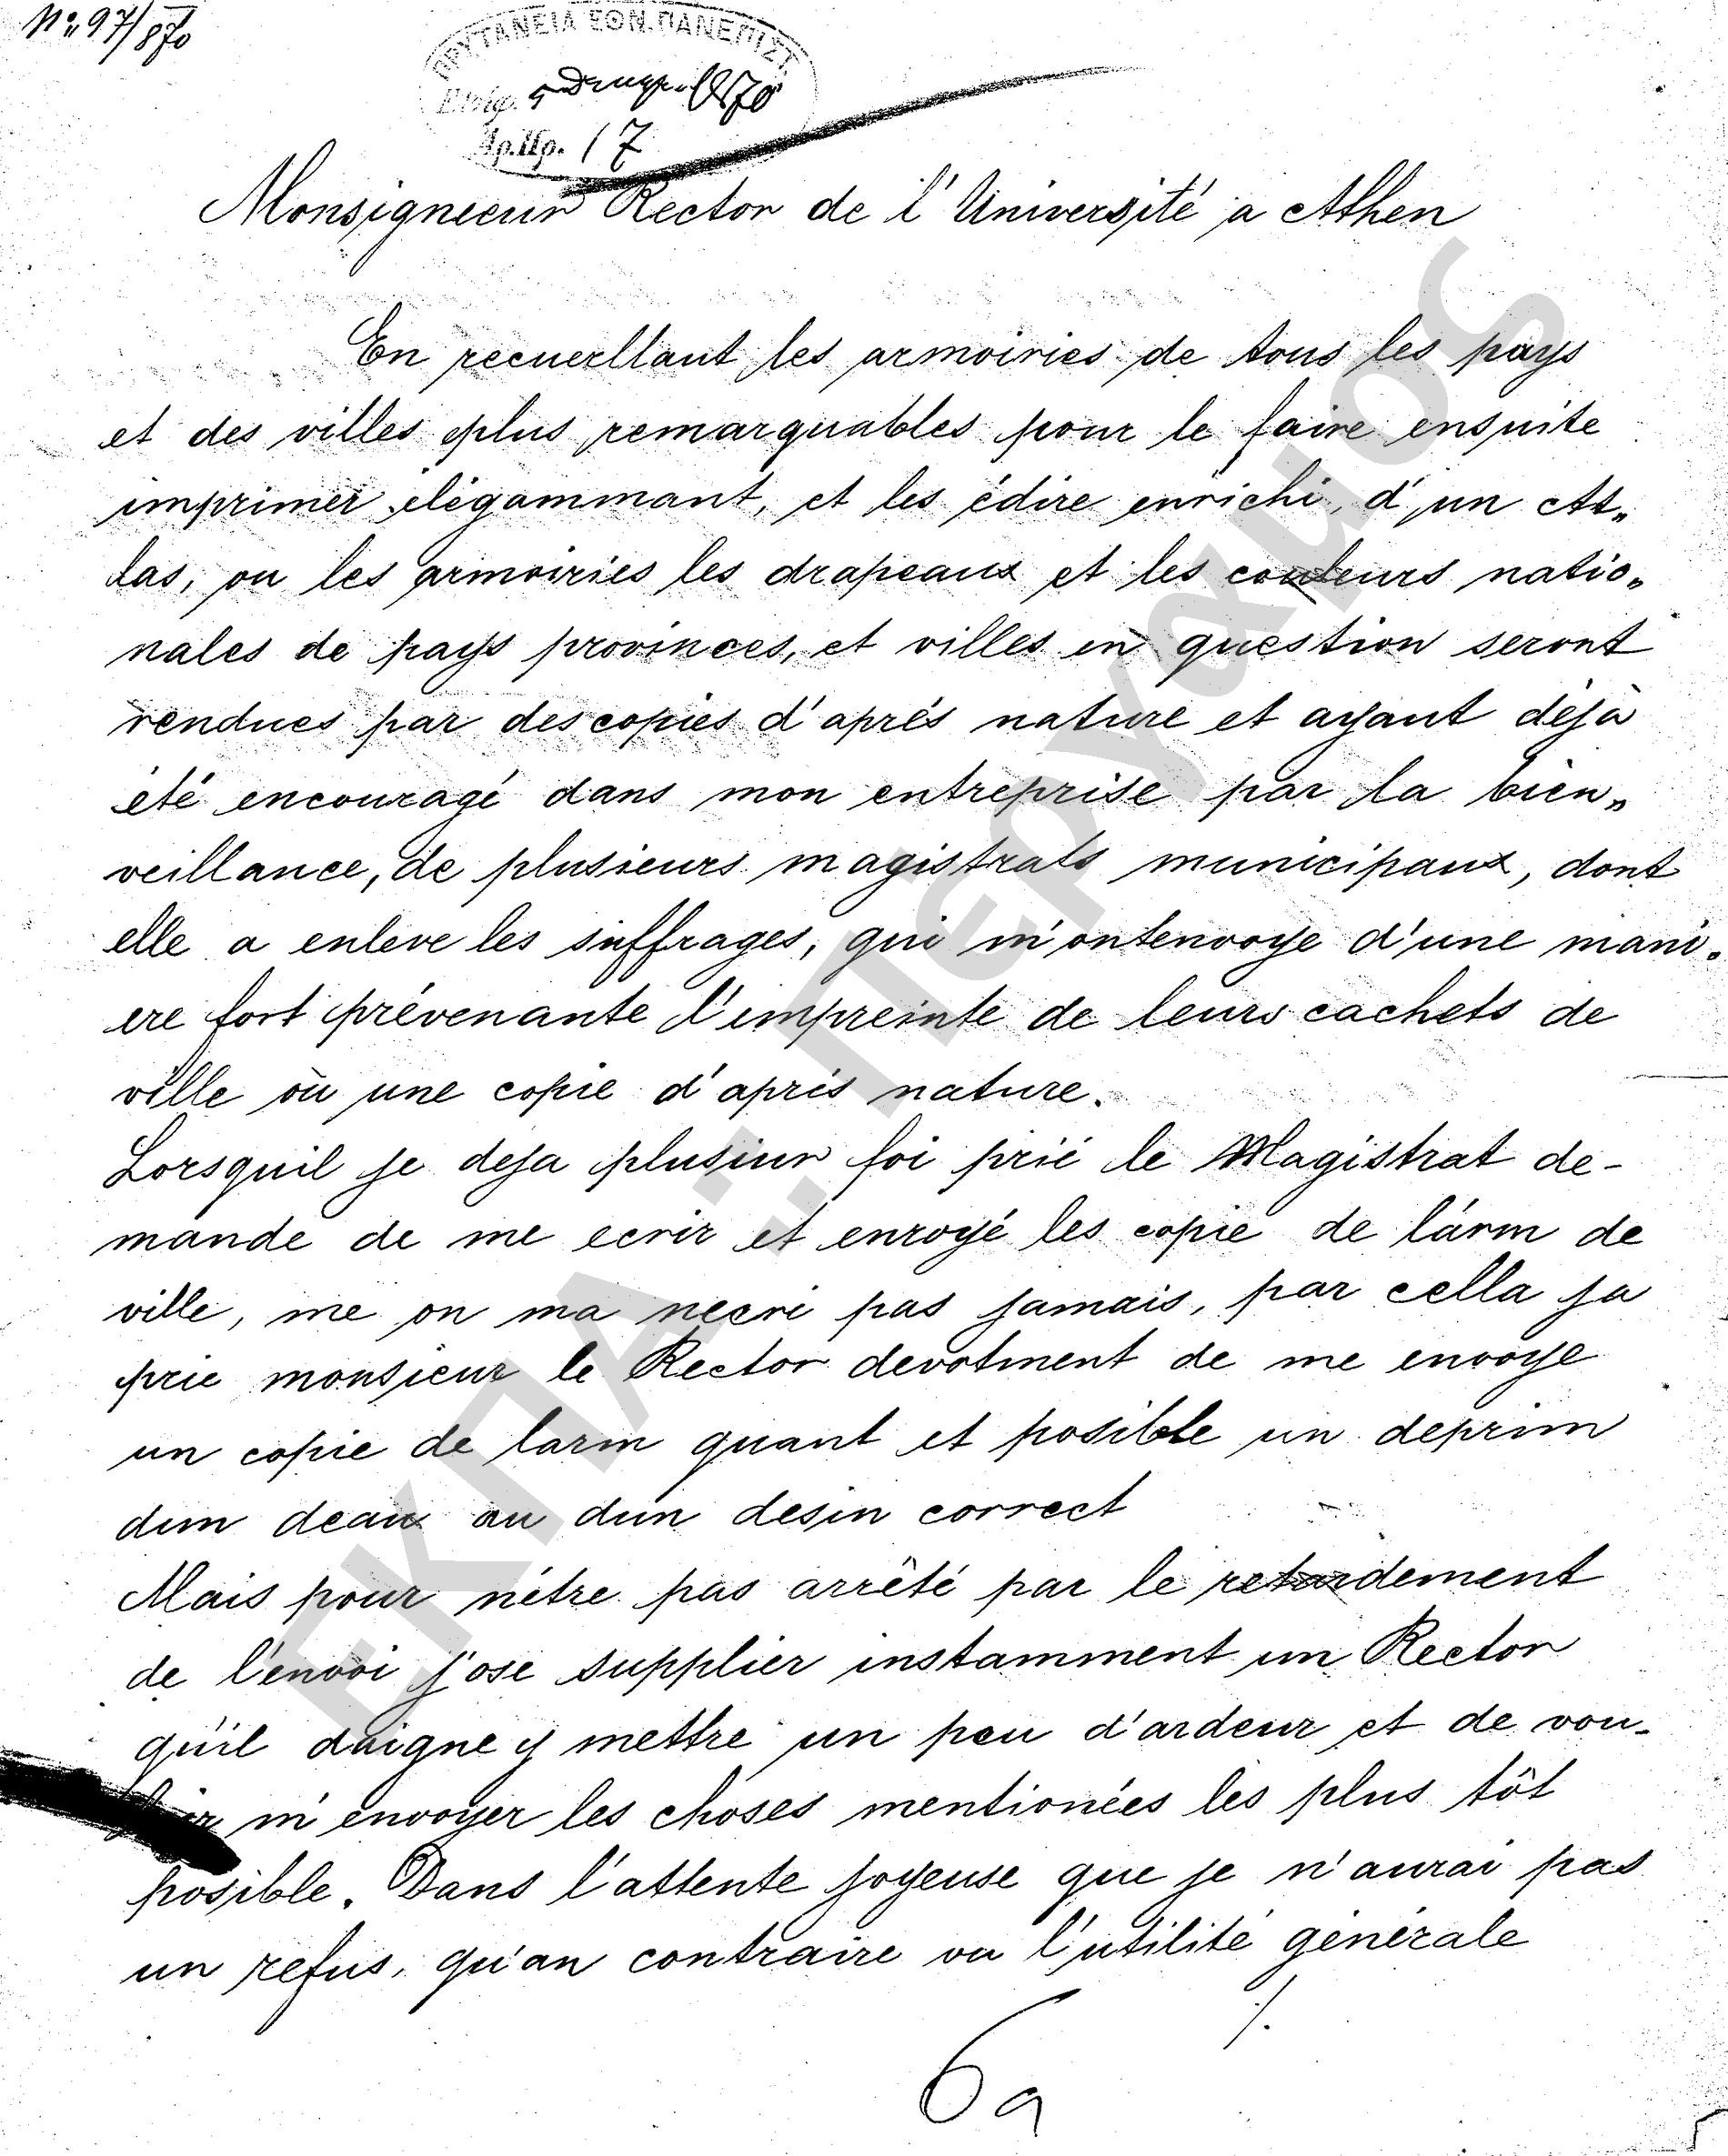 Nº 97/870
ΠΡΥΤΑΝΕΙΑ ΕΘΝ. ΠΑΝΕΠΙΣΤ.
1870
Αρ.Πρ. 17
Monsigneeur Rector de l'Université a Athen
En recuerllant les armoiries de tous les pays
et des villes plus remarquables pour le faire ensuite
imprimer élégammant, et les édire enrichi, d'un At„
las, ou les armoiries les drapeaux et les couleurs natio„
nales de pays provinces, et villes en question seront
rendues par des copies d'aprés nature et ayant déjà
été encouragé dans mon entreprise par la bien„
veillance, de plusieurs magistrats municipaux, dont
elle a enleve les suffrages, qui m'ontenvoye d'une mani„
ere fort prévenante l'empreinte de leurs cachets de
ville où une copie d'aprés nature.
Lorsquil je deja plusiur foi prié le Magistrat de-
mande de me ecrir et envoyé les copie de l'arm de
ville, me on ma necri pas jamais, par cella ja
prie monsieur le Rector devotment de me envoye
un copie de larm quant et posible un deprim
dun deaux ou dun desin correct
Mais pour nétre pas arrêté par le retardement
de l'envoi j'ose supplier instamment un Rector
qu'il daigne y mettre un peu d'ardeur et de vou-
loir m'envoyer les choses mentionées les plus tôt
posible. Dans l'attente joyeuse que je n'aurai pas
un refus, qu'au contraire vu l'utilité générale
./.
6a
ΕΚΠΑ:: Πέργαμος